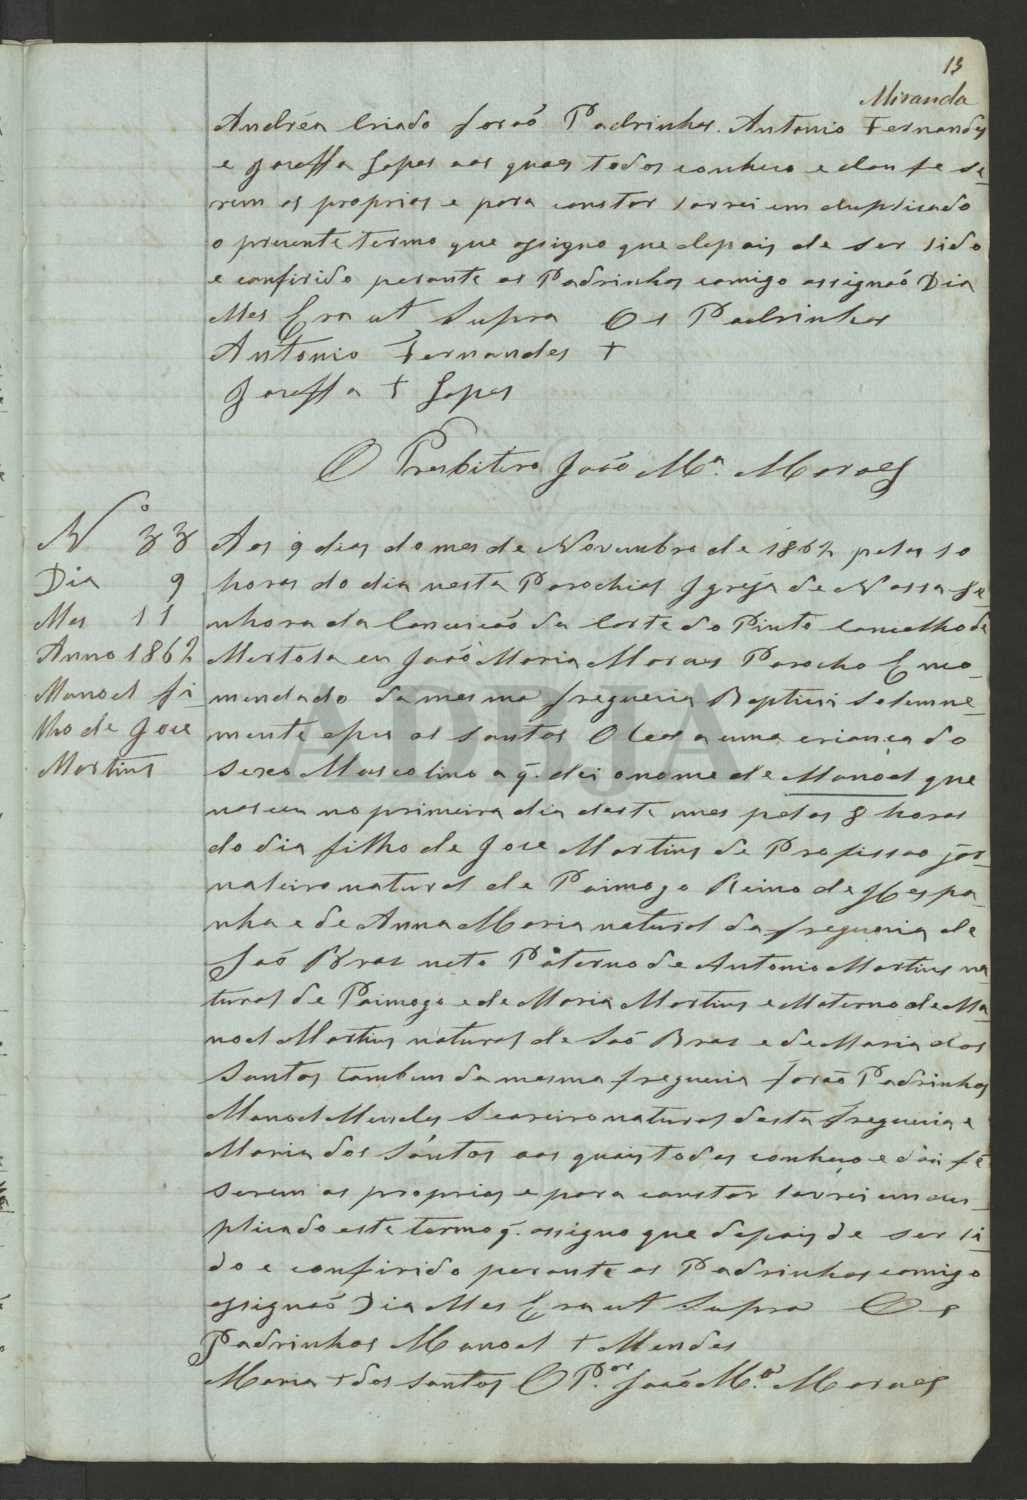 13
Miranda
Andréa Criado forão Padrinhos. Antonio Fernandes
e Joseffa Lopes aos quaes todos conheco e dou fe se-
rem os proprios e para constar lavrei em duplicado
o presente termo que assigno que depois de ser lido
e confirido perante os Padrinhos comigo assignaõ Dia
Mes Era ut Supra Os Padrinhos
Antonio Fernandes +
Joseffa + Lopes
O Presbitero João Mª. Moraes
Nº 33
Dia 9
Mes 11
Anno 1862
Manoel fi
lho de Jose
Martins
Aos 9 dias do mes de Novembro de 1862 pelas 10
horas do dia nesta Parochial Igreja de Nossa Se-
nhora da Conceicaõ da Corte do Pinto Concelho de
Mertola eu João Maria Moraes Parocho Enco-
mendado da mesma freguesia Baptisei Solemne-
mente e pus os Santos Oleos a uma criança do
Sexo Mascolino a q. dei o nome de Manoel que
nasceu no primeiro dia deste mes pelas 8 horas
do dia filho de Jose Martins de Profissao jor-
naleiro natural de Paimogo Reino de Hespa-
nha e de Anna Maria natural da freguesia de
Saõ Bras neto Paterno de Antonio Martins na
tural de Paimogo e de Maria Martins e Materno de Ma-
noel Martins natural de Saõ Bras e de Maria dos
Santos tambem da mesma freguesia foraõ Padrinhos
Manoel Mendes Seareiro natural desta freguesia e
Maria dos Santos aos quais todos conheço e dou fé
serem os proprios e para constar lavrei em du-
plicado este termo q. assigno que depois de ser li-
do e confirido perante os Padrinhos comigo
assignaõ Dia Mes Era ut Supra Os
Padrinhos Manoel + Mendes
Maria + dos Santos O P.or João M.ª Moraes
ADBJA